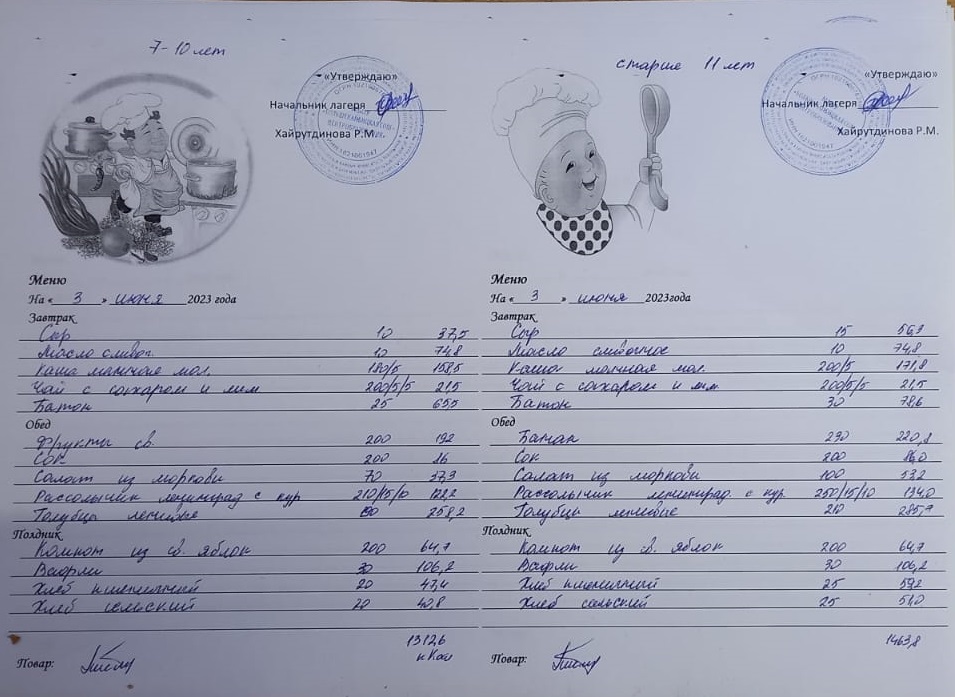 7-10 лет
«Утверждаю»
Начальник лагеря
Хайрутдинова Р.М.
Меню
На « 3 » июня 2023 года
Завтрак
Сыр 10 37,5
Масло сливоч. 10 74,8
Каша манная мол. 180/5 158,5
Чай с сахаром и лим 200/5/5 21,5
Батон 25 65,5
Обед
Фрукты св. 200 192
Сок 200 86
Салат из моркови 70 37,3
Рассольник ленинград с кур 210/15/10 122,2
Голубцы ленивые 258,2
Полдник
Компот из св. яблок 200 64,7
Вафли 30 106,2
Хлеб пшеничный 20 47,4
Хлеб сельский 20 40,8
1312,6
кКал
Повар:
старше 11 лет
«Утверждаю»
Начальник лагеря
Хайрутдинова Р.М.
Меню
На « 3 » июня 2023года
Завтрак
Сыр 15 56,3
Масло сливочное 10 74,8
Каша манная мол. 200/5 171,8
Чай с сахаром и лим 200/5/5 21,5
Батон 30 78,6
Обед
Банан 230 220,8
Сок 200 86,0
Салат из моркови 100 53,2
Рассольник ленинград. с кур 250/15/10 134,0
Голубцы ленивые 210
Полдник
Компот из св. яблок 200 64,7
Вафли 30 106,2
Хлеб пшеничный 25 59,2
Хлеб сельский 25 51,0
1463,8
Повар: